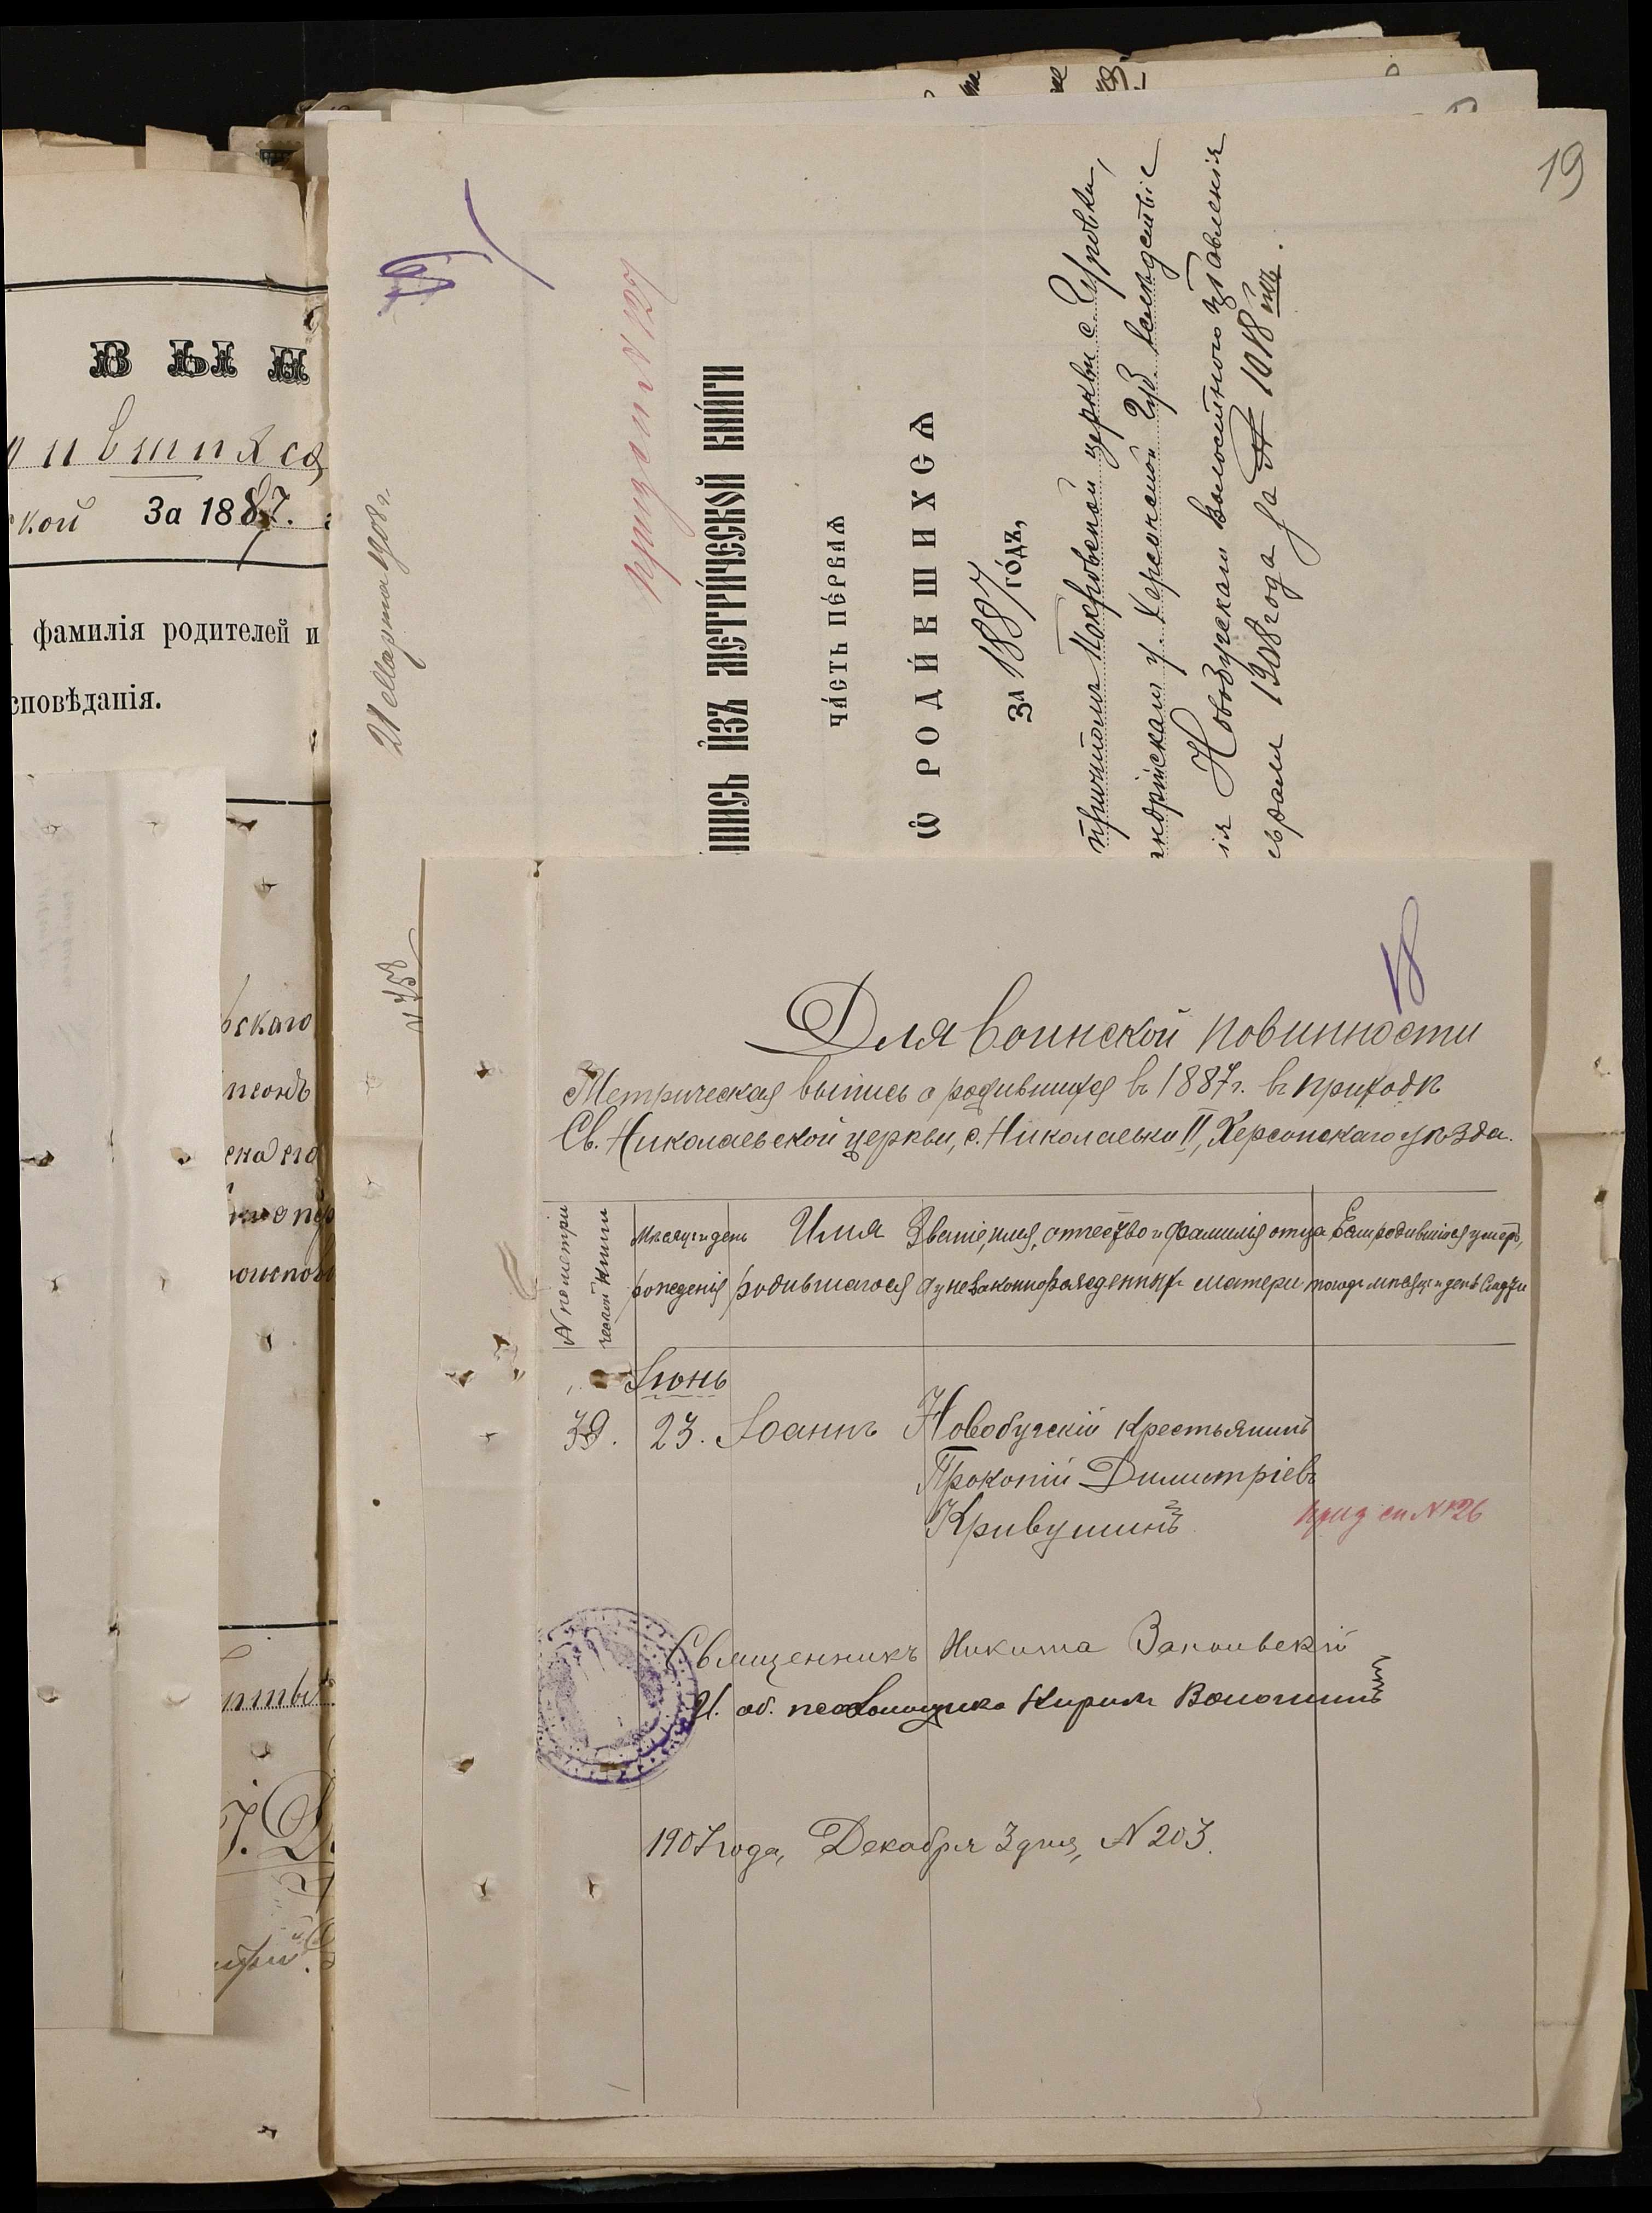 ВЫП
ившихся
ской За 1887.
фамилія родителей и
сповѣданія.
скаго
19
21 Марта 1908 г.
N 758
призот N 127
ПИСЬ ИЗЪ МЕТРИ́ЧЕСКОЙ КНИ́ГИ
ЧА́СТЬ ПЕ́РВАЯ
Ѿ РОДИ́ВШИХСѦ
ЗА 1887 ГО́ДЪ,
причтомъ Покровской церкви с. Гуровки,
андрійскаго у. Херсонской Губ. вслѣдствіе
ія Новобугскаго Волостного Правленія
враля 1908 года за № 1018 мъ.
18
Для воинской повинности
Метрическая выпись о родившихся въ 1887 г. въ приходѣ
Св. Николаевской церкви, с. Николаевки II, Херсонскаго уѣзда.
N по метри
ческой книги
Мѣсяцъ и день
рожденія
Имя
родившагося
Званіе, имя, отчество и фамилія отца
а у незаконнорожденныхъ матери
Если родившійся умеръ,
то годъ мѣсяцъ и день смерти
Іюнь
39. 23. Іоаннъ Новобугскій крестьянинъ
Прокопій Димитріевъ
Кривушинъ
приз сп N 126
Священникъ Никита
И. об. псаломщика Кирилъ Волошинъ
1907 года, Декабря 3 дня, N 203.